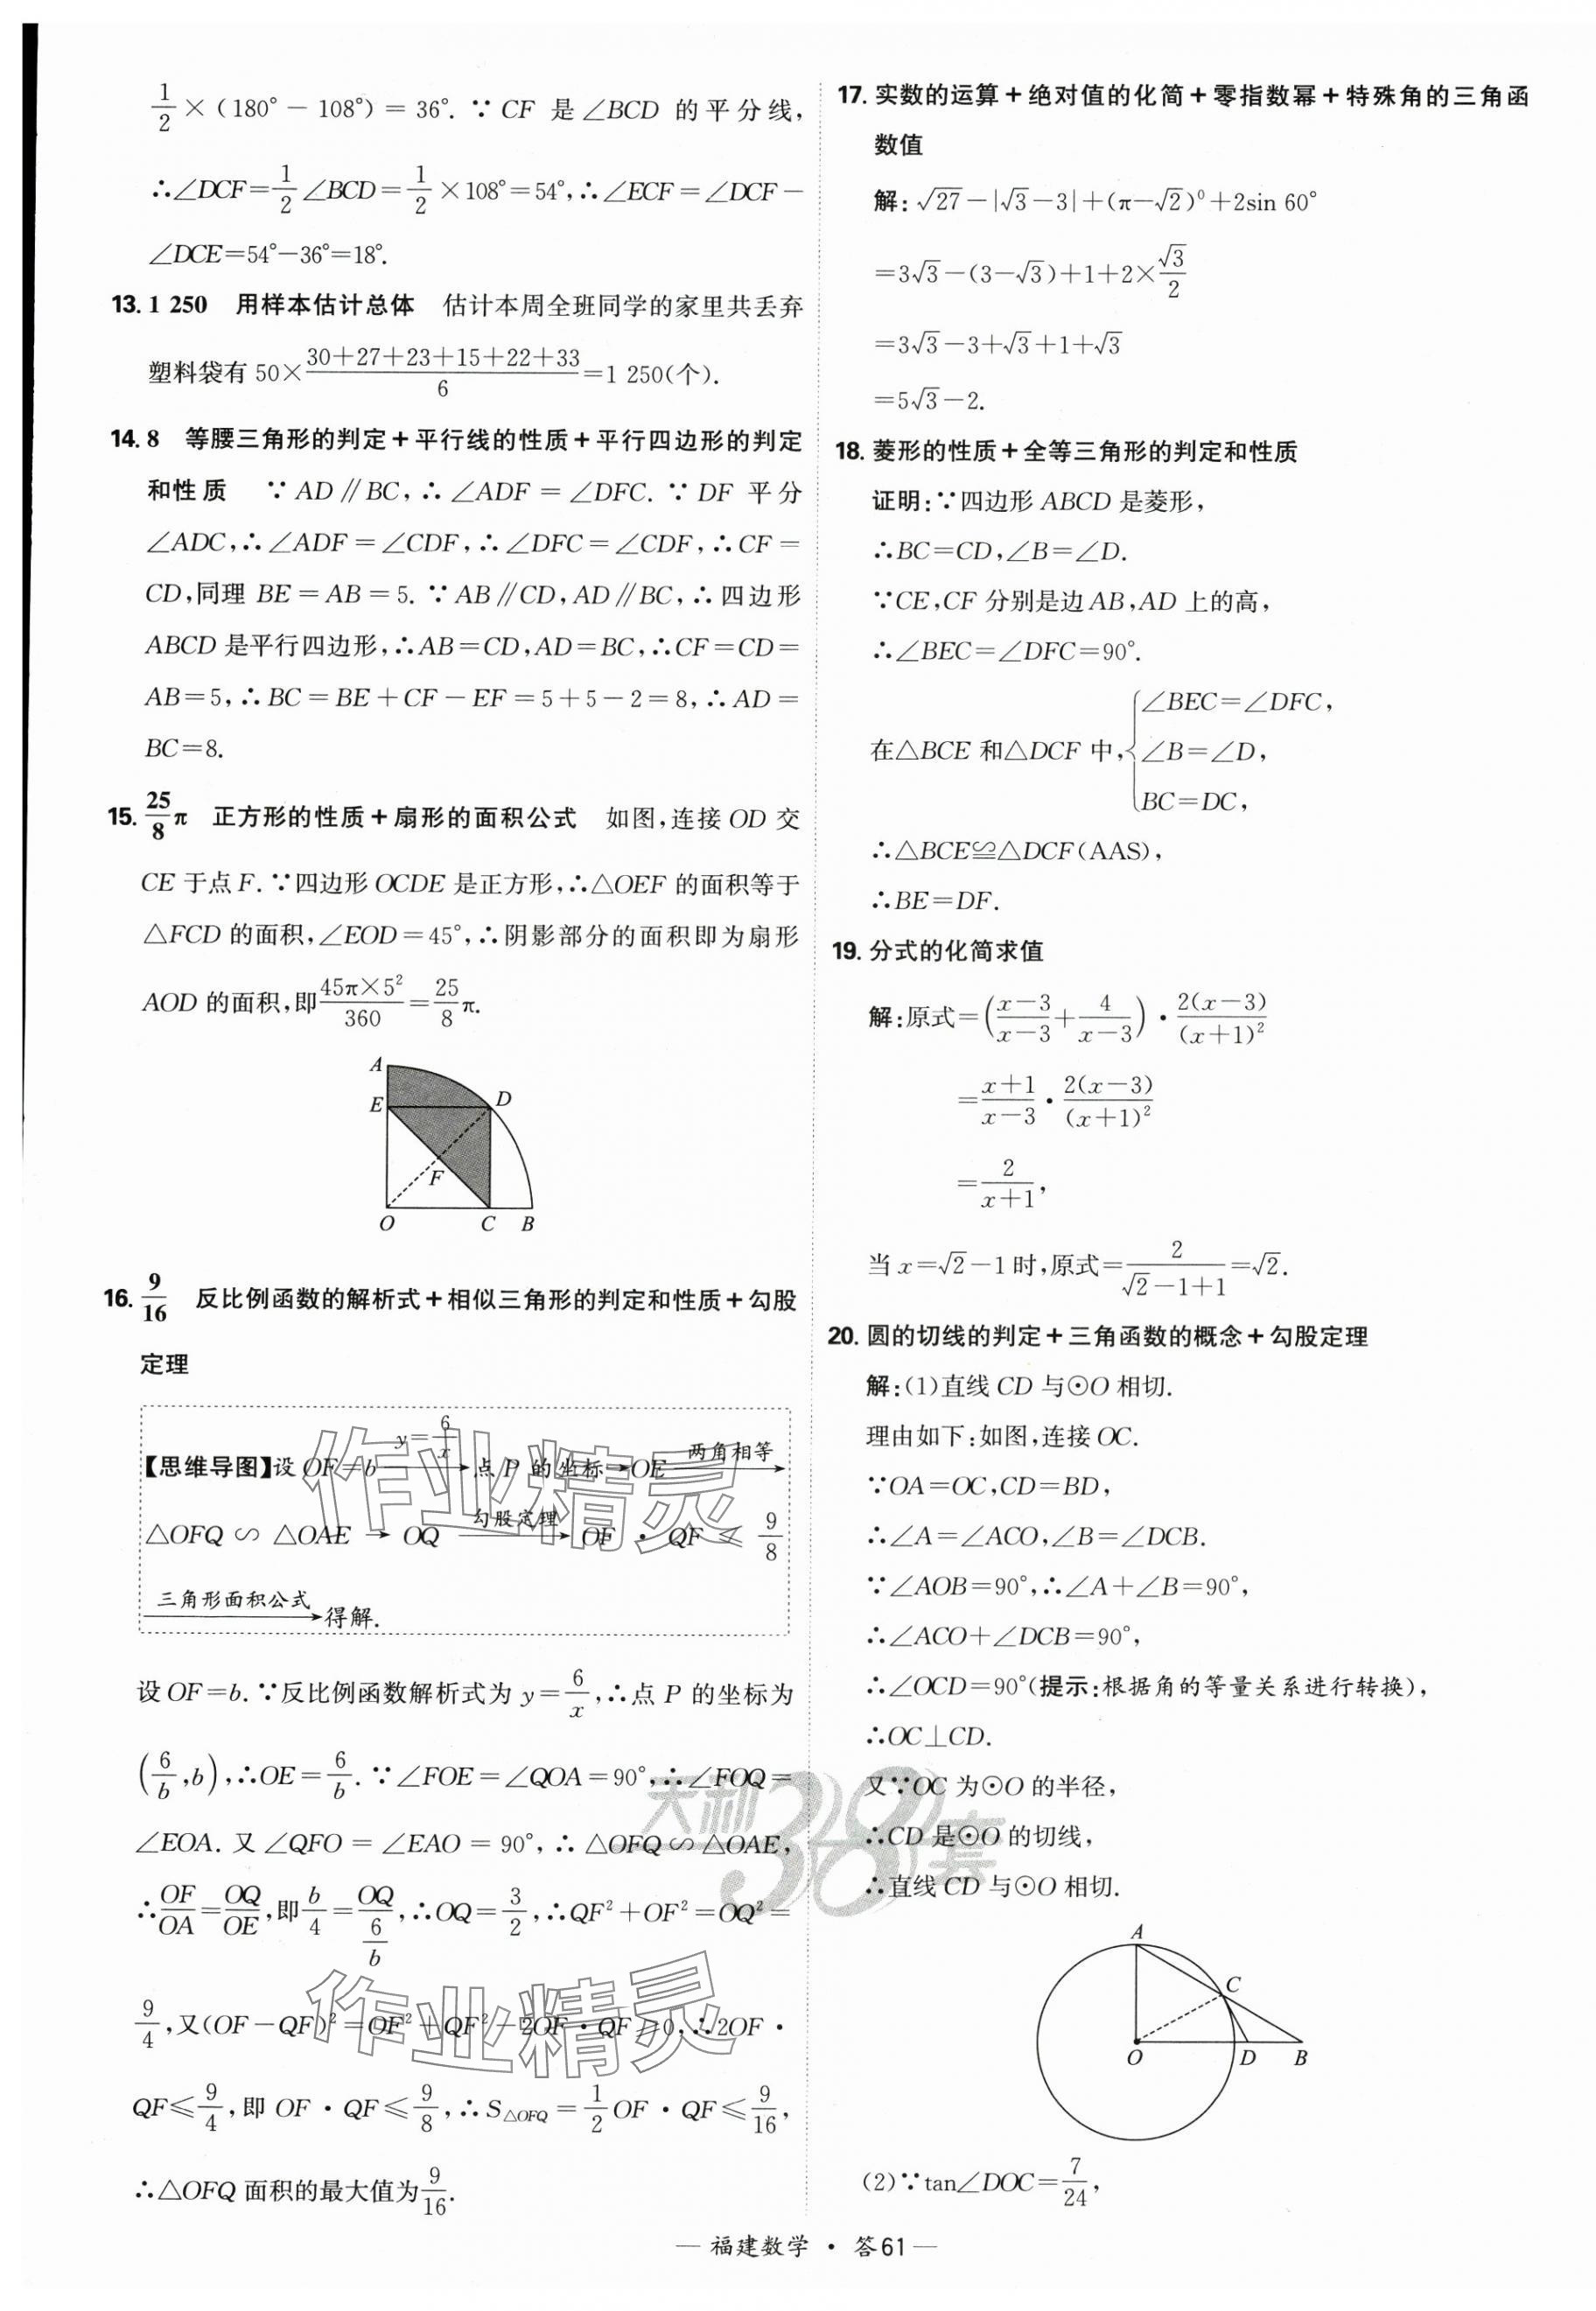 1/2×(180°－108°)＝36°.∵CF 是∠BCD 的平分线,
∴∠DCF＝1/2∠BCD＝1/2×108°＝54°,∴∠ECF＝∠DCF－
∠DCE＝54°－36°＝18°.
13. 1 250 用样本估计总体 估计本周全班同学的家里共丢弃
塑料袋有 50×(30＋27＋23＋15＋22＋33)/6＝1 250(个).
14. 8 等腰三角形的判定＋平行线的性质＋平行四边形的判定
和性质 ∵AD∥BC,∴∠ADF＝∠DFC.∵DF 平分
∠ADC,∴∠ADF＝∠CDF,∴∠DFC＝∠CDF,∴CF＝
CD,同理 BE＝AB＝5.∵AB∥CD,AD∥BC,∴四边形
ABCD 是平行四边形,∴AB＝CD,AD＝BC,∴CF＝CD＝
AB＝5,∴BC＝BE＋CF－EF＝5＋5－2＝8,∴AD＝
BC＝8.
15. 25/8π 正方形的性质＋扇形的面积公式 如图,连接 OD 交
CE 于点 F.∵四边形 OCDE 是正方形,∴△OEF 的面积等于
△FCD 的面积,∠EOD＝45°,∴阴影部分的面积即为扇形
AOD 的面积,即 45π×5²/360＝25/8π.
A
E
D
F
O
C
B
16. 9/16 反比例函数的解析式＋相似三角形的判定和性质＋勾股
定理
【思维导图】设 OF＝b —y＝6/x→ 点 P 的坐标→OE —两角相等→
△OFQ∽△OAE → OQ —勾股定理→ OF·QF≤9/8
—三角形面积公式→得解.
设 OF＝b.∵反比例函数解析式为 y＝6/x,∴点 P 的坐标为
(6/b,b),∴OE＝6/b.∵∠FOE＝∠QOA＝90°,∴∠FOQ＝
∠EOA.又∠QFO＝∠EAO＝90°,∴△OFQ∽△OAE,
∴OF/OA＝OQ/OE,即 b/4＝OQ/(6/b),∴OQ＝3/2,∴QF²＋OF²＝OQ²＝
9/4,又(OF－QF)²＝OF²＋QF²－2OF·QF≥0,∴2OF·
QF≤9/4,即 OF·QF≤9/8,∴S△OFQ＝1/2OF·QF≤9/16,
∴△OFQ 面积的最大值为9/16.
17. 实数的运算＋绝对值的化简＋零指数幂＋特殊角的三角函
数值
解:√27－|√3－3|＋(π－√2)⁰＋2sin 60°
＝3√3－(3－√3)＋1＋2×√3/2
＝3√3－3＋√3＋1＋√3
＝5√3－2.
18. 菱形的性质＋全等三角形的判定和性质
证明:∵四边形 ABCD 是菱形,
∴BC＝CD,∠B＝∠D.
∵CE,CF 分别是边 AB,AD 上的高,
∴∠BEC＝∠DFC＝90°.
∠BEC＝∠DFC,
在△BCE 和△DCF 中,{∠B＝∠D,
BC＝DC,
∴△BCE≌△DCF(AAS),
∴BE＝DF.
19. 分式的化简求值
解:原式＝((x－3)/(x－3)＋4/(x－3))·2(x－3)/(x＋1)²
＝(x＋1)/(x－3)·2(x－3)/(x＋1)²
＝2/(x＋1),
当 x＝√2－1 时,原式＝2/(√2－1＋1)＝√2.
20. 圆的切线的判定＋三角函数的概念＋勾股定理
解:(1)直线 CD 与⊙O 相切.
理由如下:如图,连接 OC.
∵OA＝OC,CD＝BD,
∴∠A＝∠ACO,∠B＝∠DCB.
∵∠AOB＝90°,∴∠A＋∠B＝90°,
∴∠ACO＋∠DCB＝90°,
∴∠OCD＝90°(提示:根据角的等量关系进行转换),
∴OC⊥CD.
又∵OC 为⊙O 的半径,
∴CD 是⊙O 的切线,
∴直线 CD 与⊙O 相切.
A
C
O
D
B
(2)∵tan∠DOC＝7/24,
— 福建数学 · 答61 —
作业精灵
天利38套
作业精灵